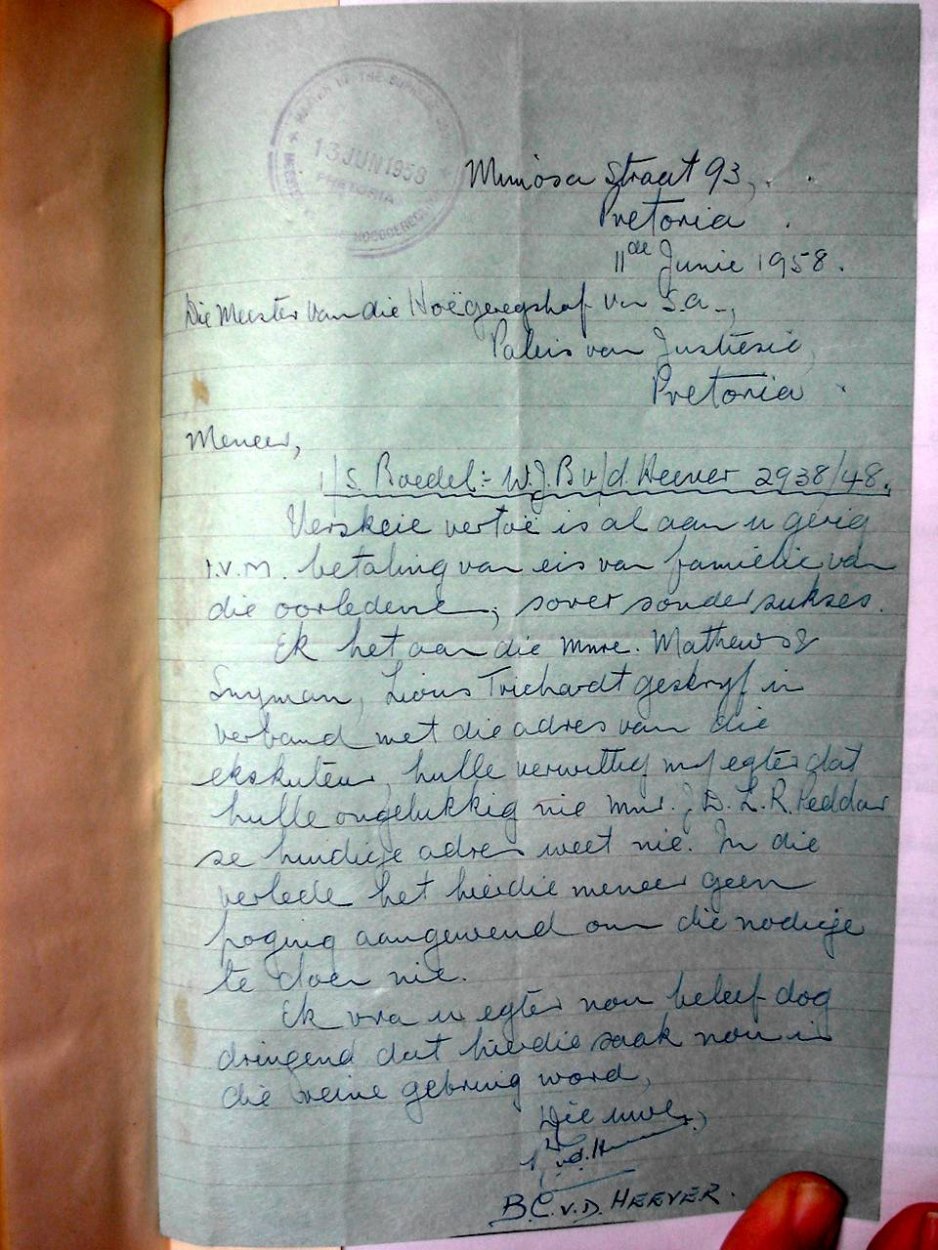 MASTER OF THE SUPREME
13 JUN 1958
PRETORIA
MEESTER HOOGGEREGSHOF
Mimosa Straat 93,
Pretoria.
11de Junie 1958.
Die Meester van die Hoëgeregshof van S.A.,
Paleis van Justiesie,
Pretoria.
Meneer,
i/s. Boedel:- W.J.B v/d. Heever 2938/48.
Verskeie vertoë is al aan u gerig
i.v.m. betaling van eis van familie van
die oorledene, sover sonder sukses.
Ek het aan die mnre. Mathews &
Snyman, Louis Trichardt geskryf in
verband met die adres van die
eksekuteur, hulle verwittig my egter dat
hulle ongelukkig nie mnr. J.D.L.R. Peddar
se huidige adres weet nie. In die
verlede het hierdie meneer geen
poging aangewend om die nodige
te doen nie.
Ek vra u egter nou beleef dog
dringend dat hierdie saak nou in
die reine gebring word,
Die uwe,
v.d. Heever
B.C. v.D. HEEVER.